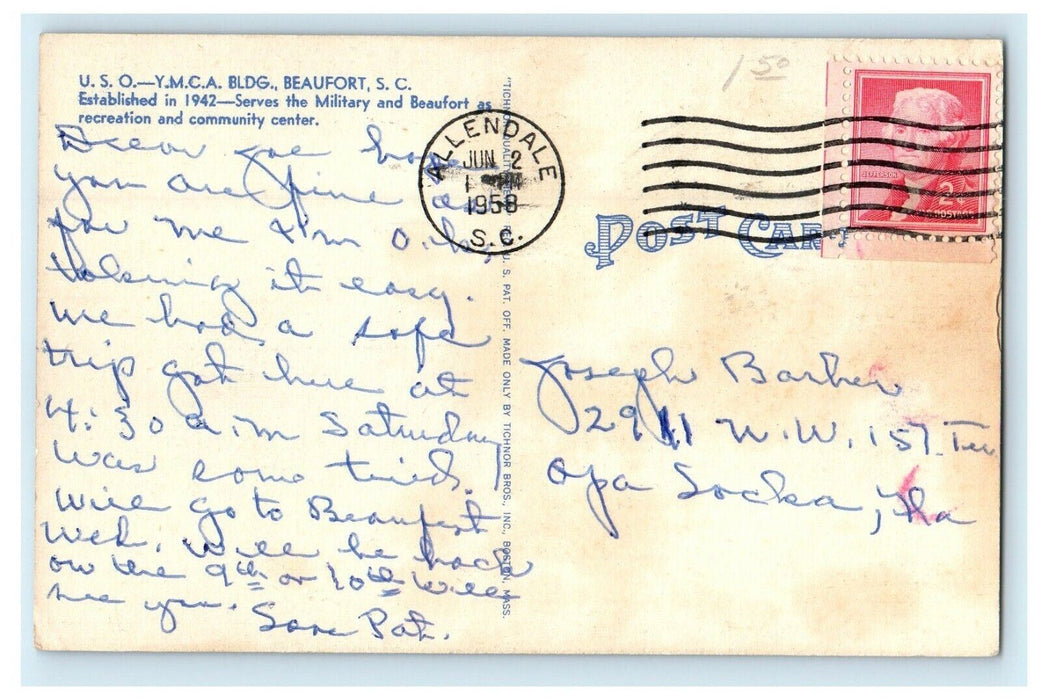 U. S. O.—Y.M.C.A. BLDG., BEAUFORT, S. C.
Established in 1942—Serves the Military and Beaufort as
recreation and community center.
Dear Joe hope
you are fine as
for me I'm O.k.
taking it easy.
we had a safe
trip got here at
4:30 a.m Saturday
was some tired.
will go to Beaufort
Wed. will be back
on the 9th or 10th will
see you. Pat.
"TICHNOR QUALITY U. S. PAT. OFF. MADE ONLY BY TICHNOR BROS., INC., BOSTON, MASS.
ALLENDALE
JUN 2
1958
S. C.
1 50
JEFFERSON
2¢
POST CARD
Joseph Barber
2911 N.W. 151
Opa Locka, Fla